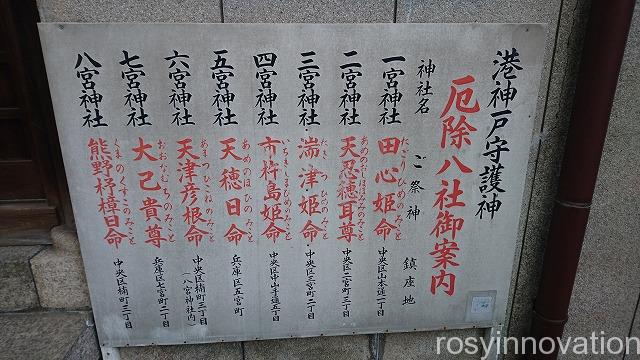 港神戸守護神
厄除八社御案内
神社名 ご祭神 鎮座地
一宮神社 田心姫命 たごりひめのみこと 中央区山本通一丁目
二宮神社 天忍穂耳尊 あめのおしほみみのみこと 中央区二宮町三丁目
三宮神社 湍津姫命 たきつひめのみこと 中央区三宮町二丁目
四宮神社 市杵島姫命 いちきしまひめのみこと 中央区中山手通五丁目
五宮神社 天穂日命 あめのほひのみこと 兵庫区五宮町
六宮神社 天津彦根命 あまつひこねのみこと 中央区楠町三丁目
(八宮神社内)
七宮神社 大己貴尊 おおなむちのみこと 兵庫区七宮町二丁目
八宮神社 熊野杼樟日命 くまのくすひのみこと 中央区楠町三丁目
rosyinnovation